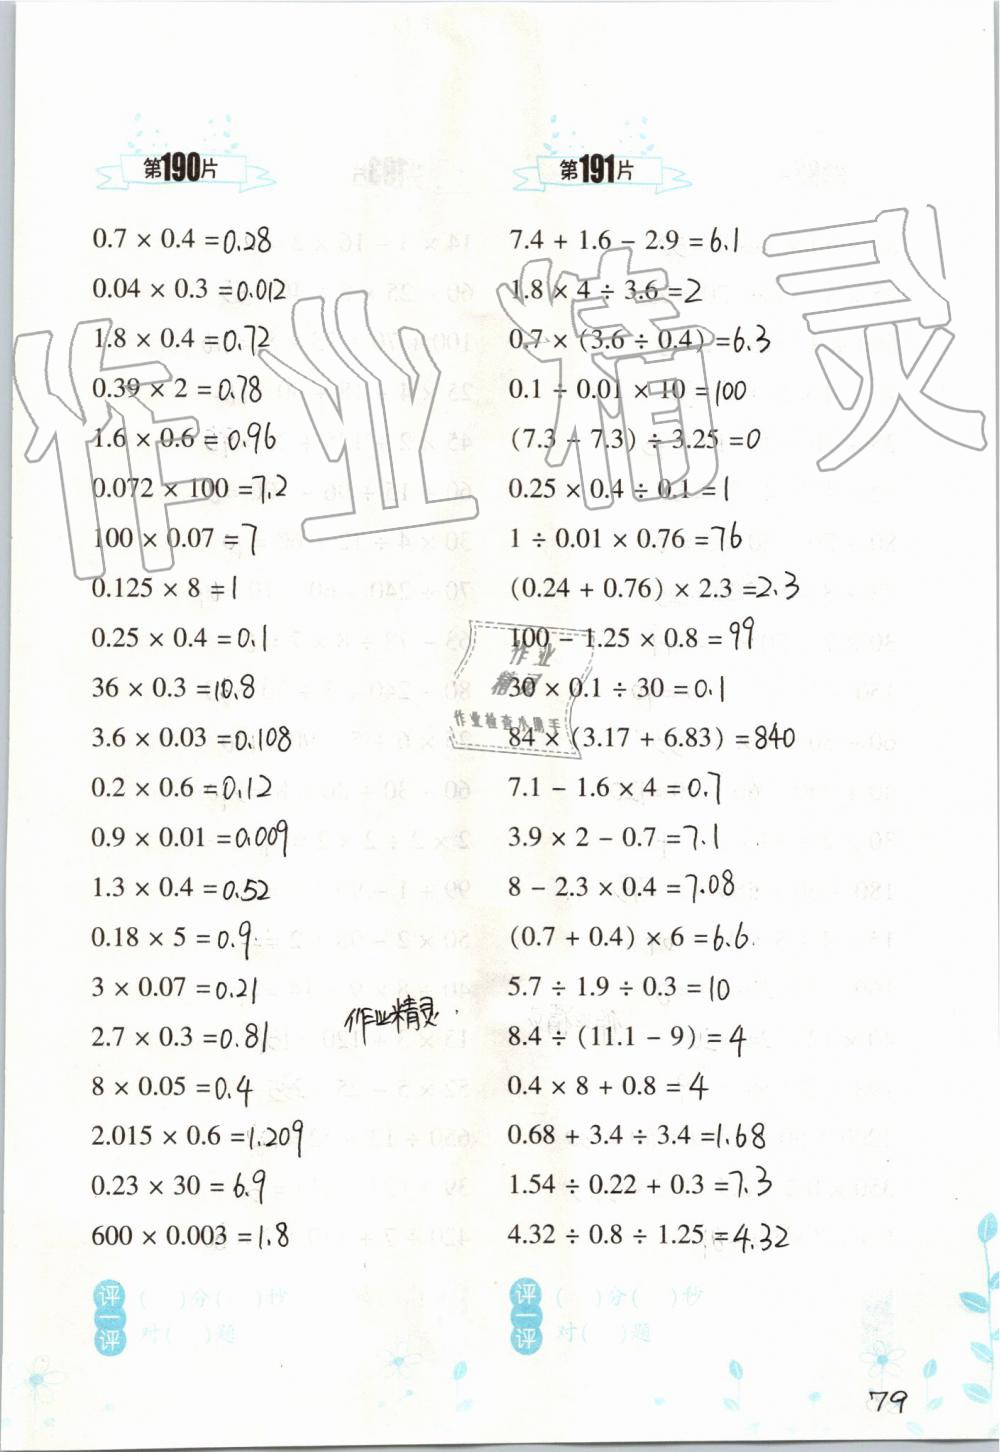 第190片
0.7 × 0.4 = 0.28
0.04 × 0.3 = 0.012
1.8 × 0.4 = 0.72
0.39 × 2 = 0.78
1.6 × 0.6 = 0.96
0.072 × 100 = 7.2
100 × 0.07 = 7
0.125 × 8 = 1
0.25 × 0.4 = 0.1
36 × 0.3 = 10.8
3.6 × 0.03 = 0.108
0.2 × 0.6 = 0.12
0.9 × 0.01 = 0.009
1.3 × 0.4 = 0.52
0.18 × 5 = 0.9
3 × 0.07 = 0.21
2.7 × 0.3 = 0.81
8 × 0.05 = 0.4
2.015 × 0.6 = 1.209
0.23 × 30 = 6.9
600 × 0.003 = 1.8
评一评
( )分( )秒
对( )题
第191片
7.4 + 1.6 − 2.9 = 6.1
1.8 × 4 ÷ 3.6 = 2
0.7 × (3.6 ÷ 0.4) = 6.3
0.1 ÷ 0.01 × 10 = 100
(7.3 − 7.3) ÷ 3.25 = 0
0.25 × 0.4 ÷ 0.1 = 1
1 ÷ 0.01 × 0.76 = 76
(0.24 + 0.76) × 2.3 = 2.3
100 − 1.25 × 0.8 = 99
30 × 0.1 ÷ 30 = 0.1
84 × (3.17 + 6.83) = 840
7.1 − 1.6 × 4 = 0.7
3.9 × 2 − 0.7 = 7.1
8 − 2.3 × 0.4 = 7.08
(0.7 + 0.4) × 6 = 6.6
5.7 ÷ 1.9 ÷ 0.3 = 10
8.4 ÷ (11.1 − 9) = 4
0.4 × 8 + 0.8 = 4
0.68 + 3.4 ÷ 3.4 = 1.68
1.54 ÷ 0.22 + 0.3 = 7.3
4.32 ÷ 0.8 ÷ 1.25 = 4.32
评一评
( )分( )秒
对( )题
作业精灵
作业
精灵
作业检查小助手
作业精灵
79